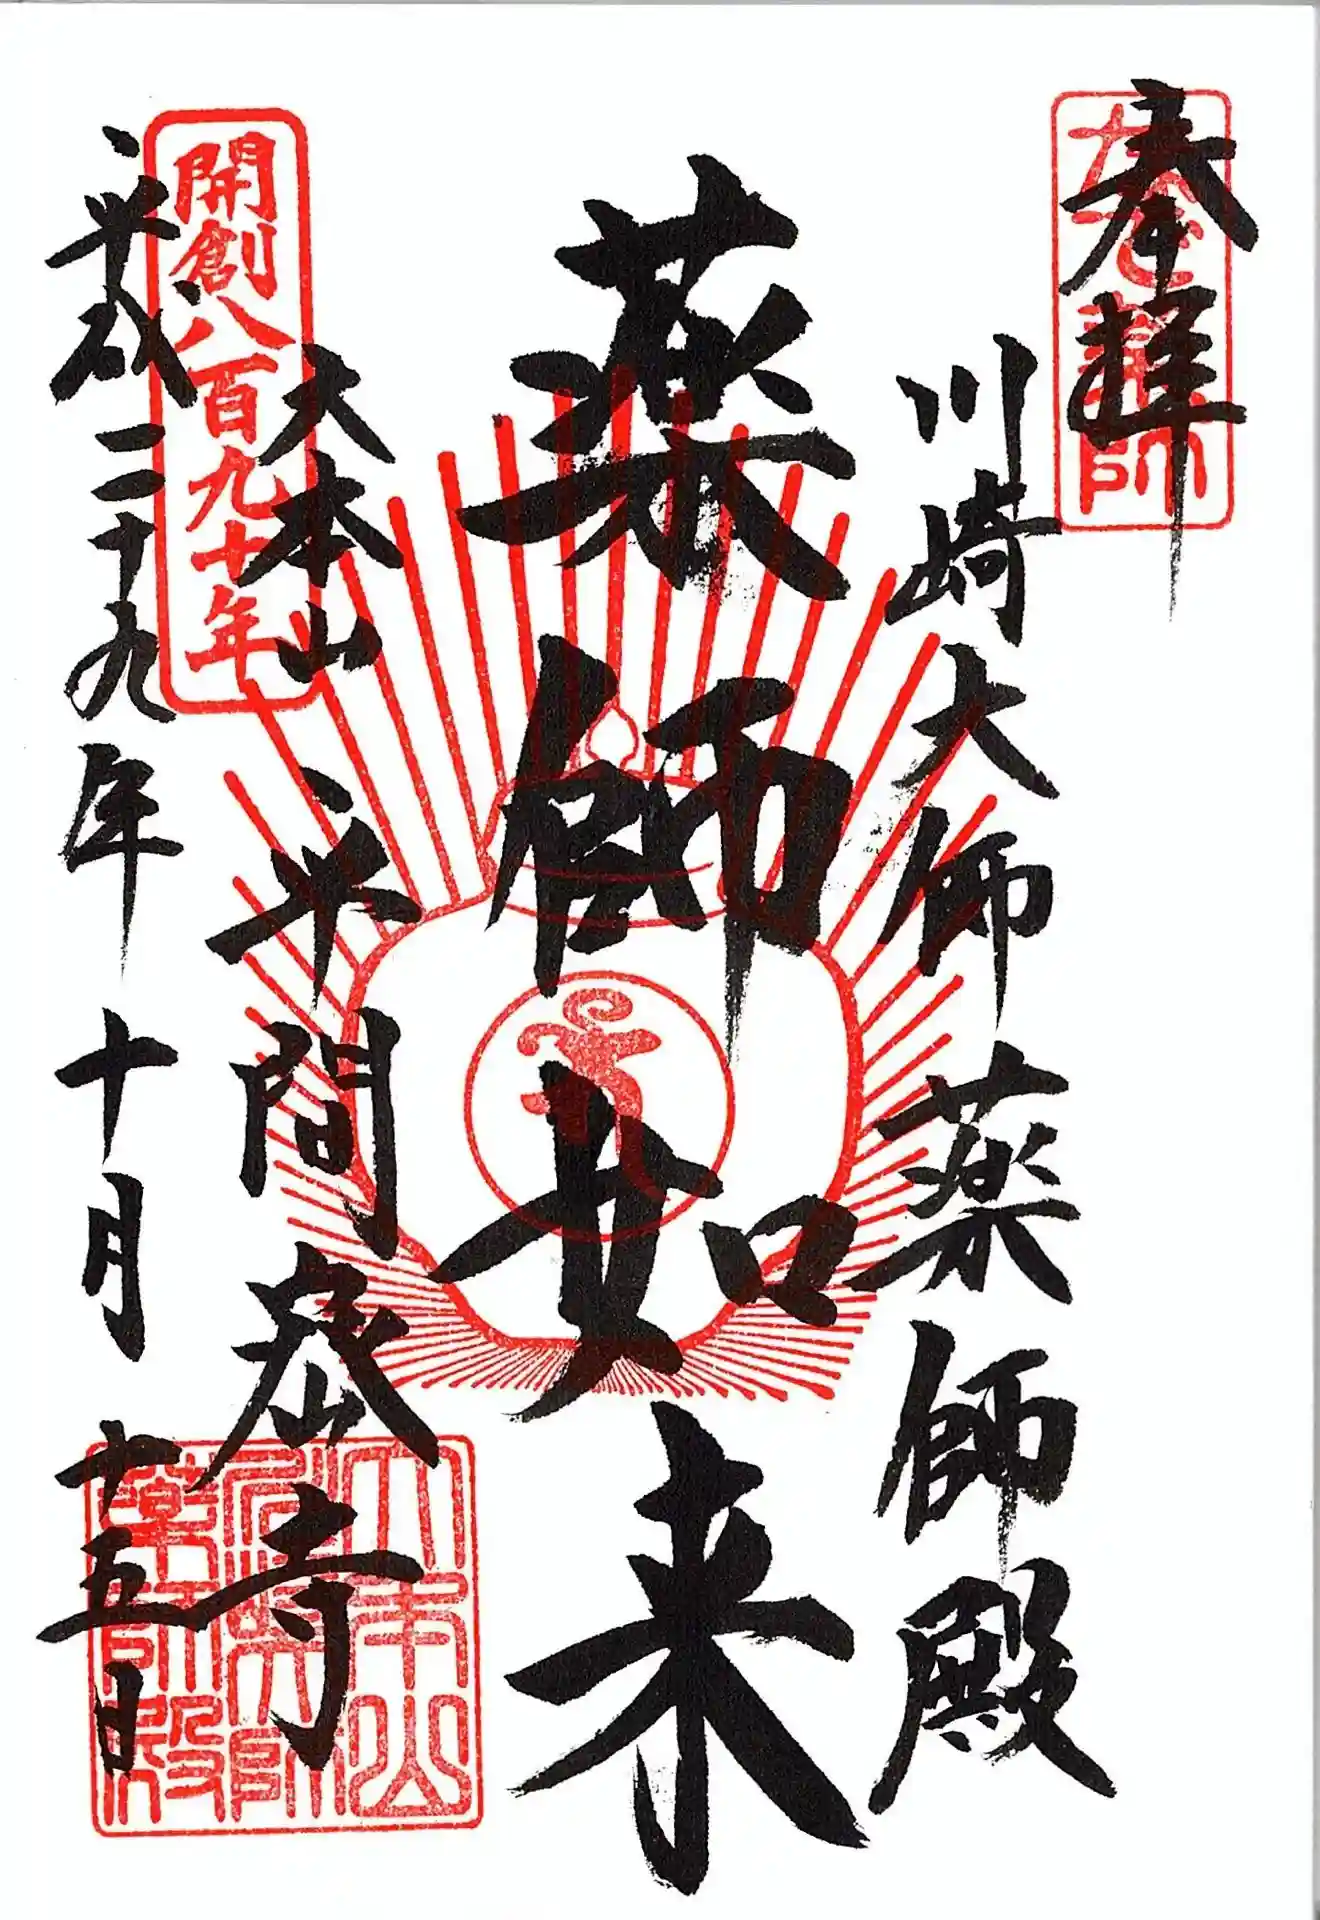 奉拝
なで薬師
川崎大師薬師殿
薬師如来
大本山
平間寺
開創八百九十年
平成二十九年十月十五日
大本山
川崎大師
薬師殿